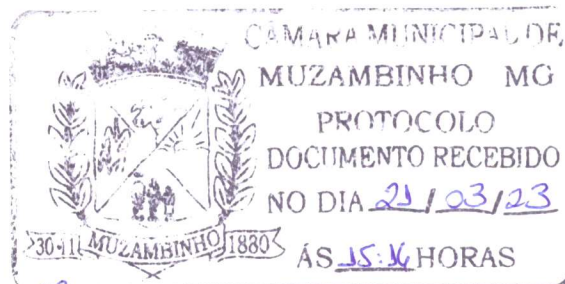 CÂMARA MUNICIPAL DE
MUZAMBINHO MG
PROTOCOLO
DOCUMENTO RECEBIDO
NO DIA 21/03/23
ÁS HORAS
30-11 MUZAMBINHO 1880